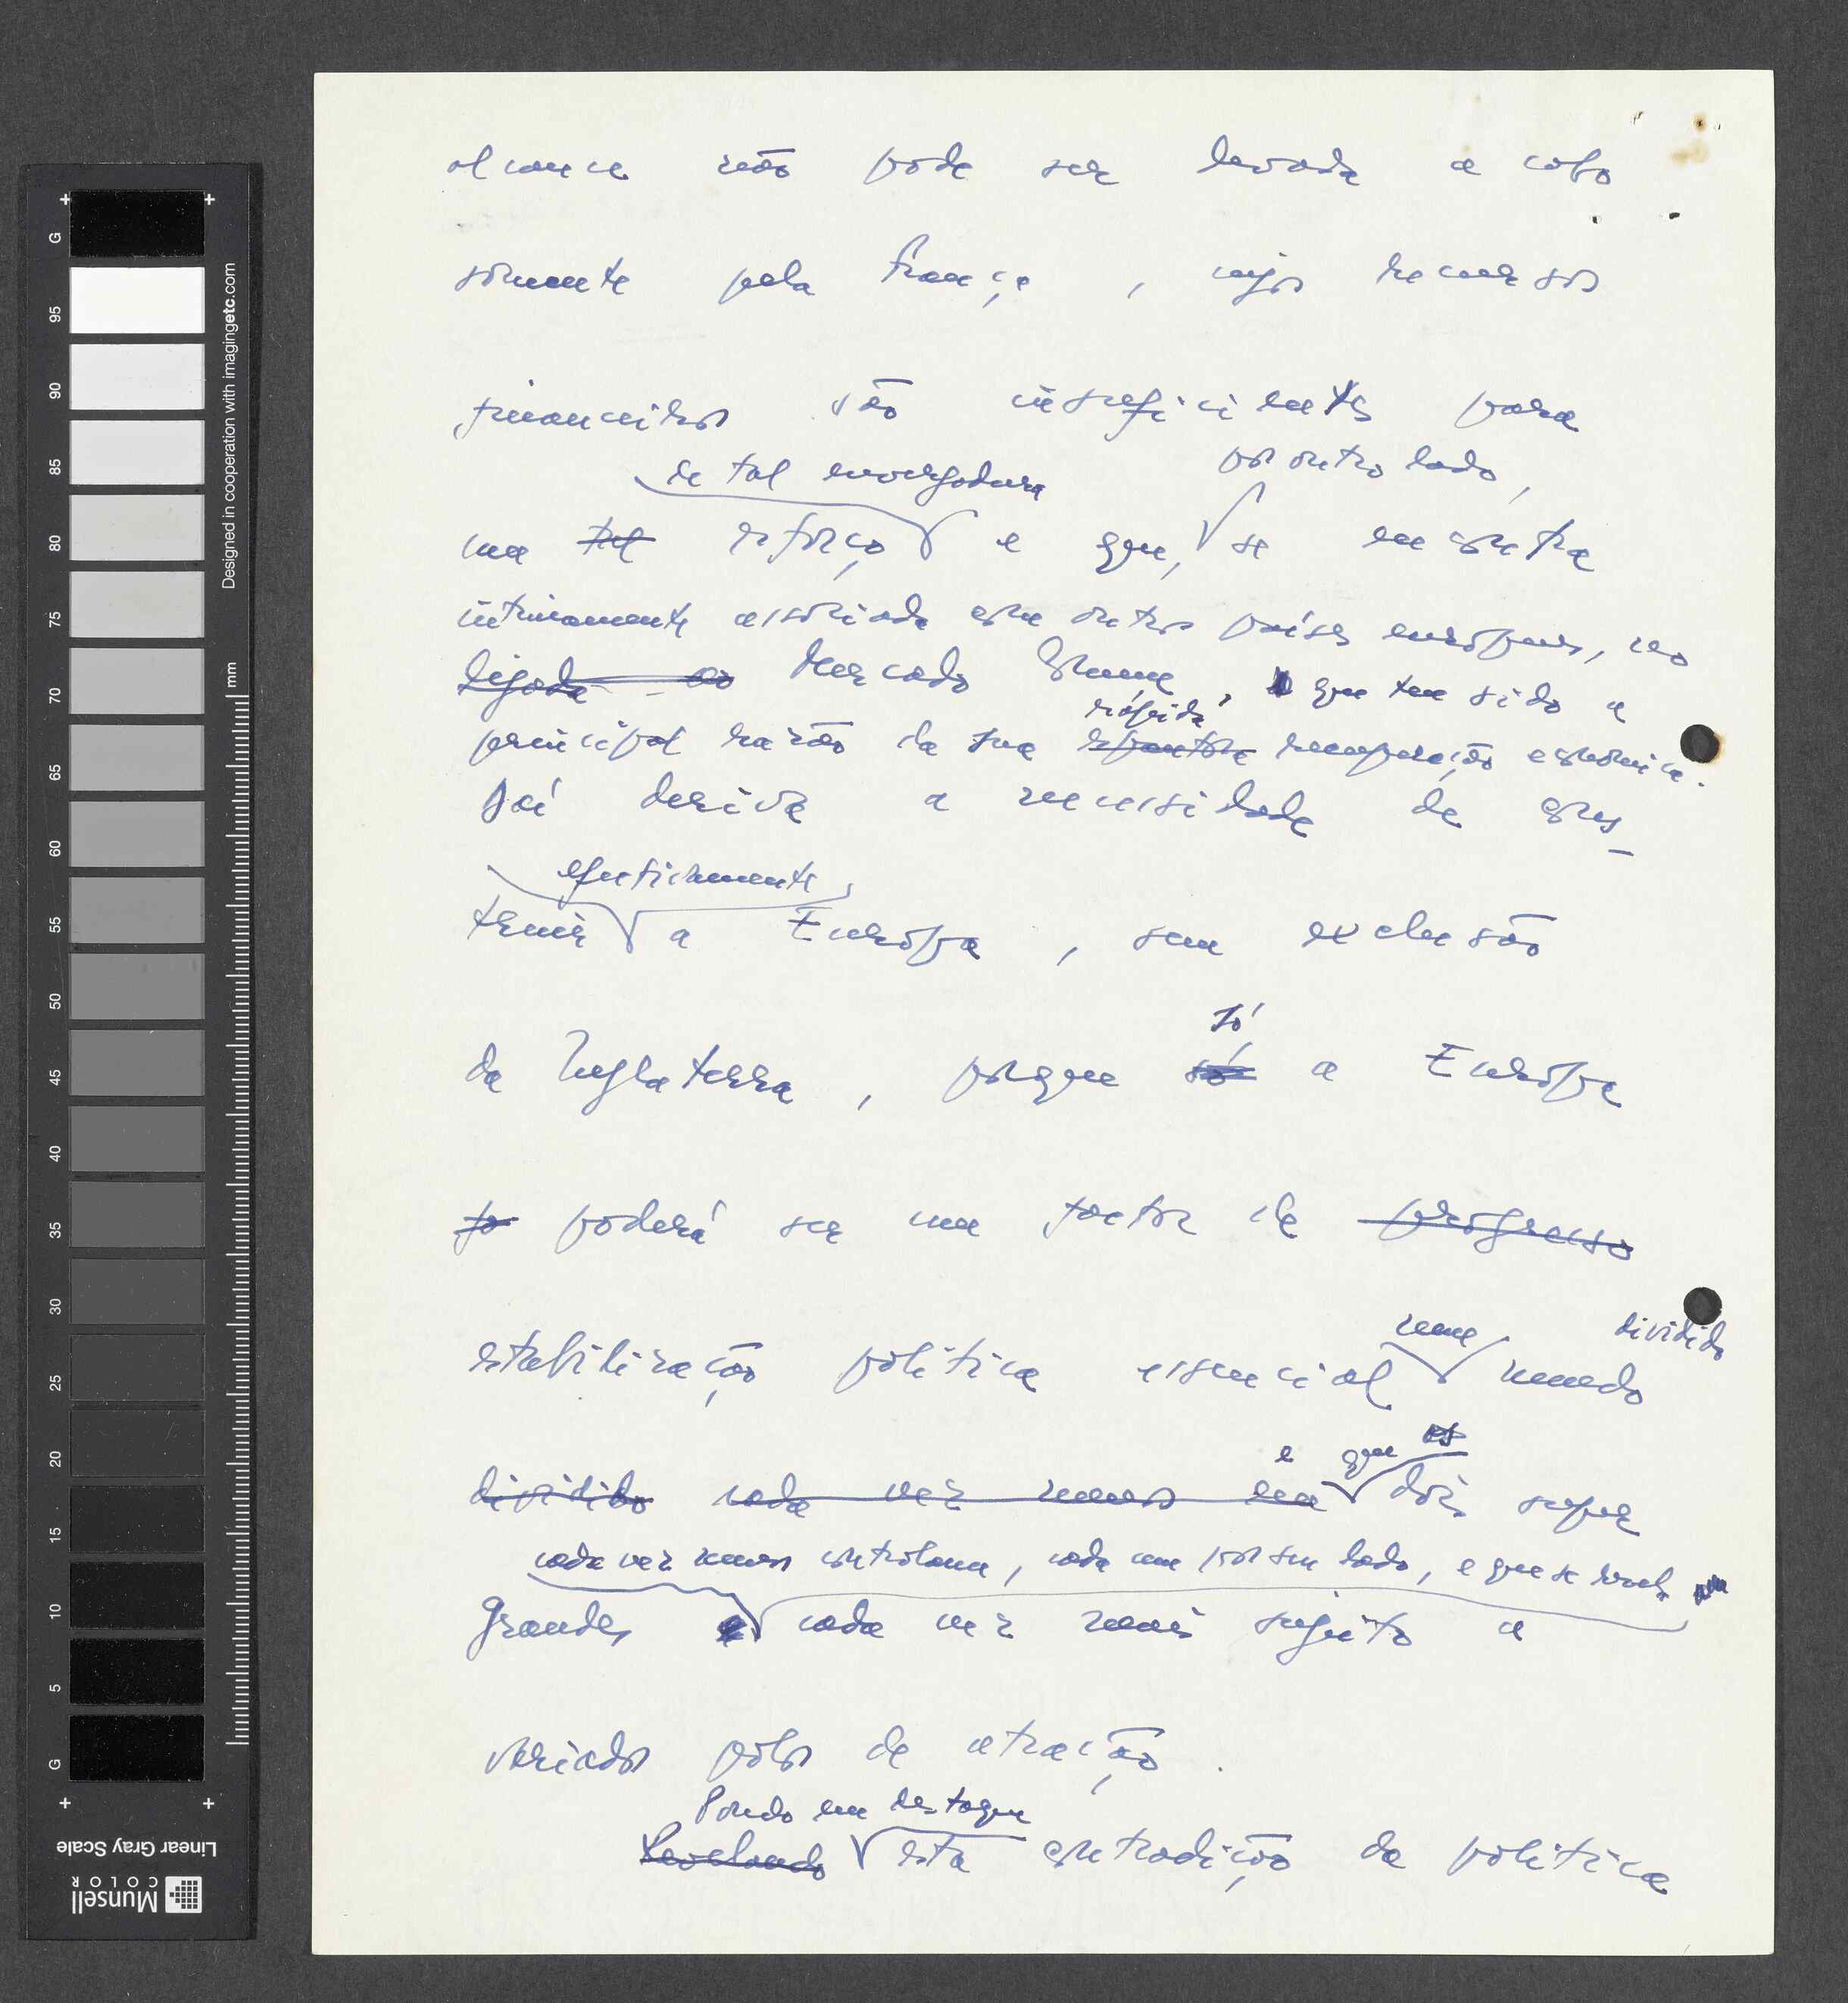 alcance não pode ser levada a cabo
sòmente pela França, cujos recursos
financeiros são insuficientes para
de tal envergadura por outro lado,
um tal esforço e que, se encontra
intimamente associada com outros países europeus, no
ligada ao Mercado Comum, que tem sido a
rápida
principal razão da sua recuperação econômica.
Daí deriva a necessidade de cons-
efetivamente
truir a Europa, sem exclusão
só
da Inglaterra, porque só a Europa
fo poderá ser um factor de progresso
num dividido
estabilização política essencial mundo
e que os
dividido cada vez menos em dois super
cada vez menos controlam, cada um por seu lado, e que se revela
Grandes cada vez mais sujeito a
variados polos de atração.
Pondo em destaque
Revelando esta contradição da política
G 95 90 85 80 75 70 65 60 55 50 45 40 35 30 25 20 15 10 5 G
mm
Designed in cooperation with imagingetc.com
Linear Gray Scale
Munsell
COLOR